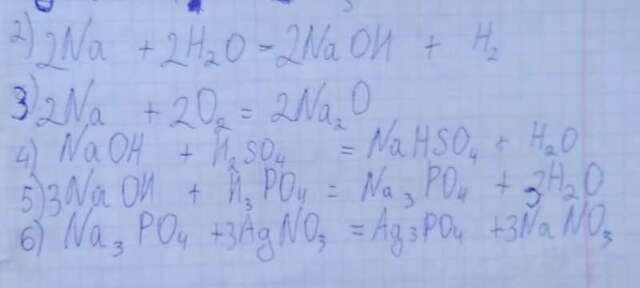 2) 2Na + 2H₂O = 2NaOH + H₂
3) 2Na + 2O₂ = 2Na₂O
4) NaOH + H₂SO₄ = NaHSO₄ + H₂O
5) 3NaOH + H₃PO₄ = Na₃PO₄ + 3H₂O
6) Na₃PO₄ + 3AgNO₃ = Ag₃PO₄ + 3NaNO₃